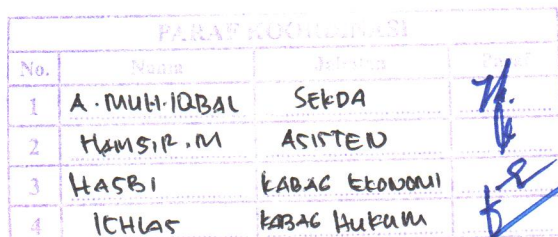 PARAF KOORDINASI
No. Nama Jabatan Paraf
1 A. MUH. IQBAL SEKDA
2 HAMSIR. M ASISTEN
3 HASBI KABAG EKONOMI
4 ICHLAS KABAG HUKUM